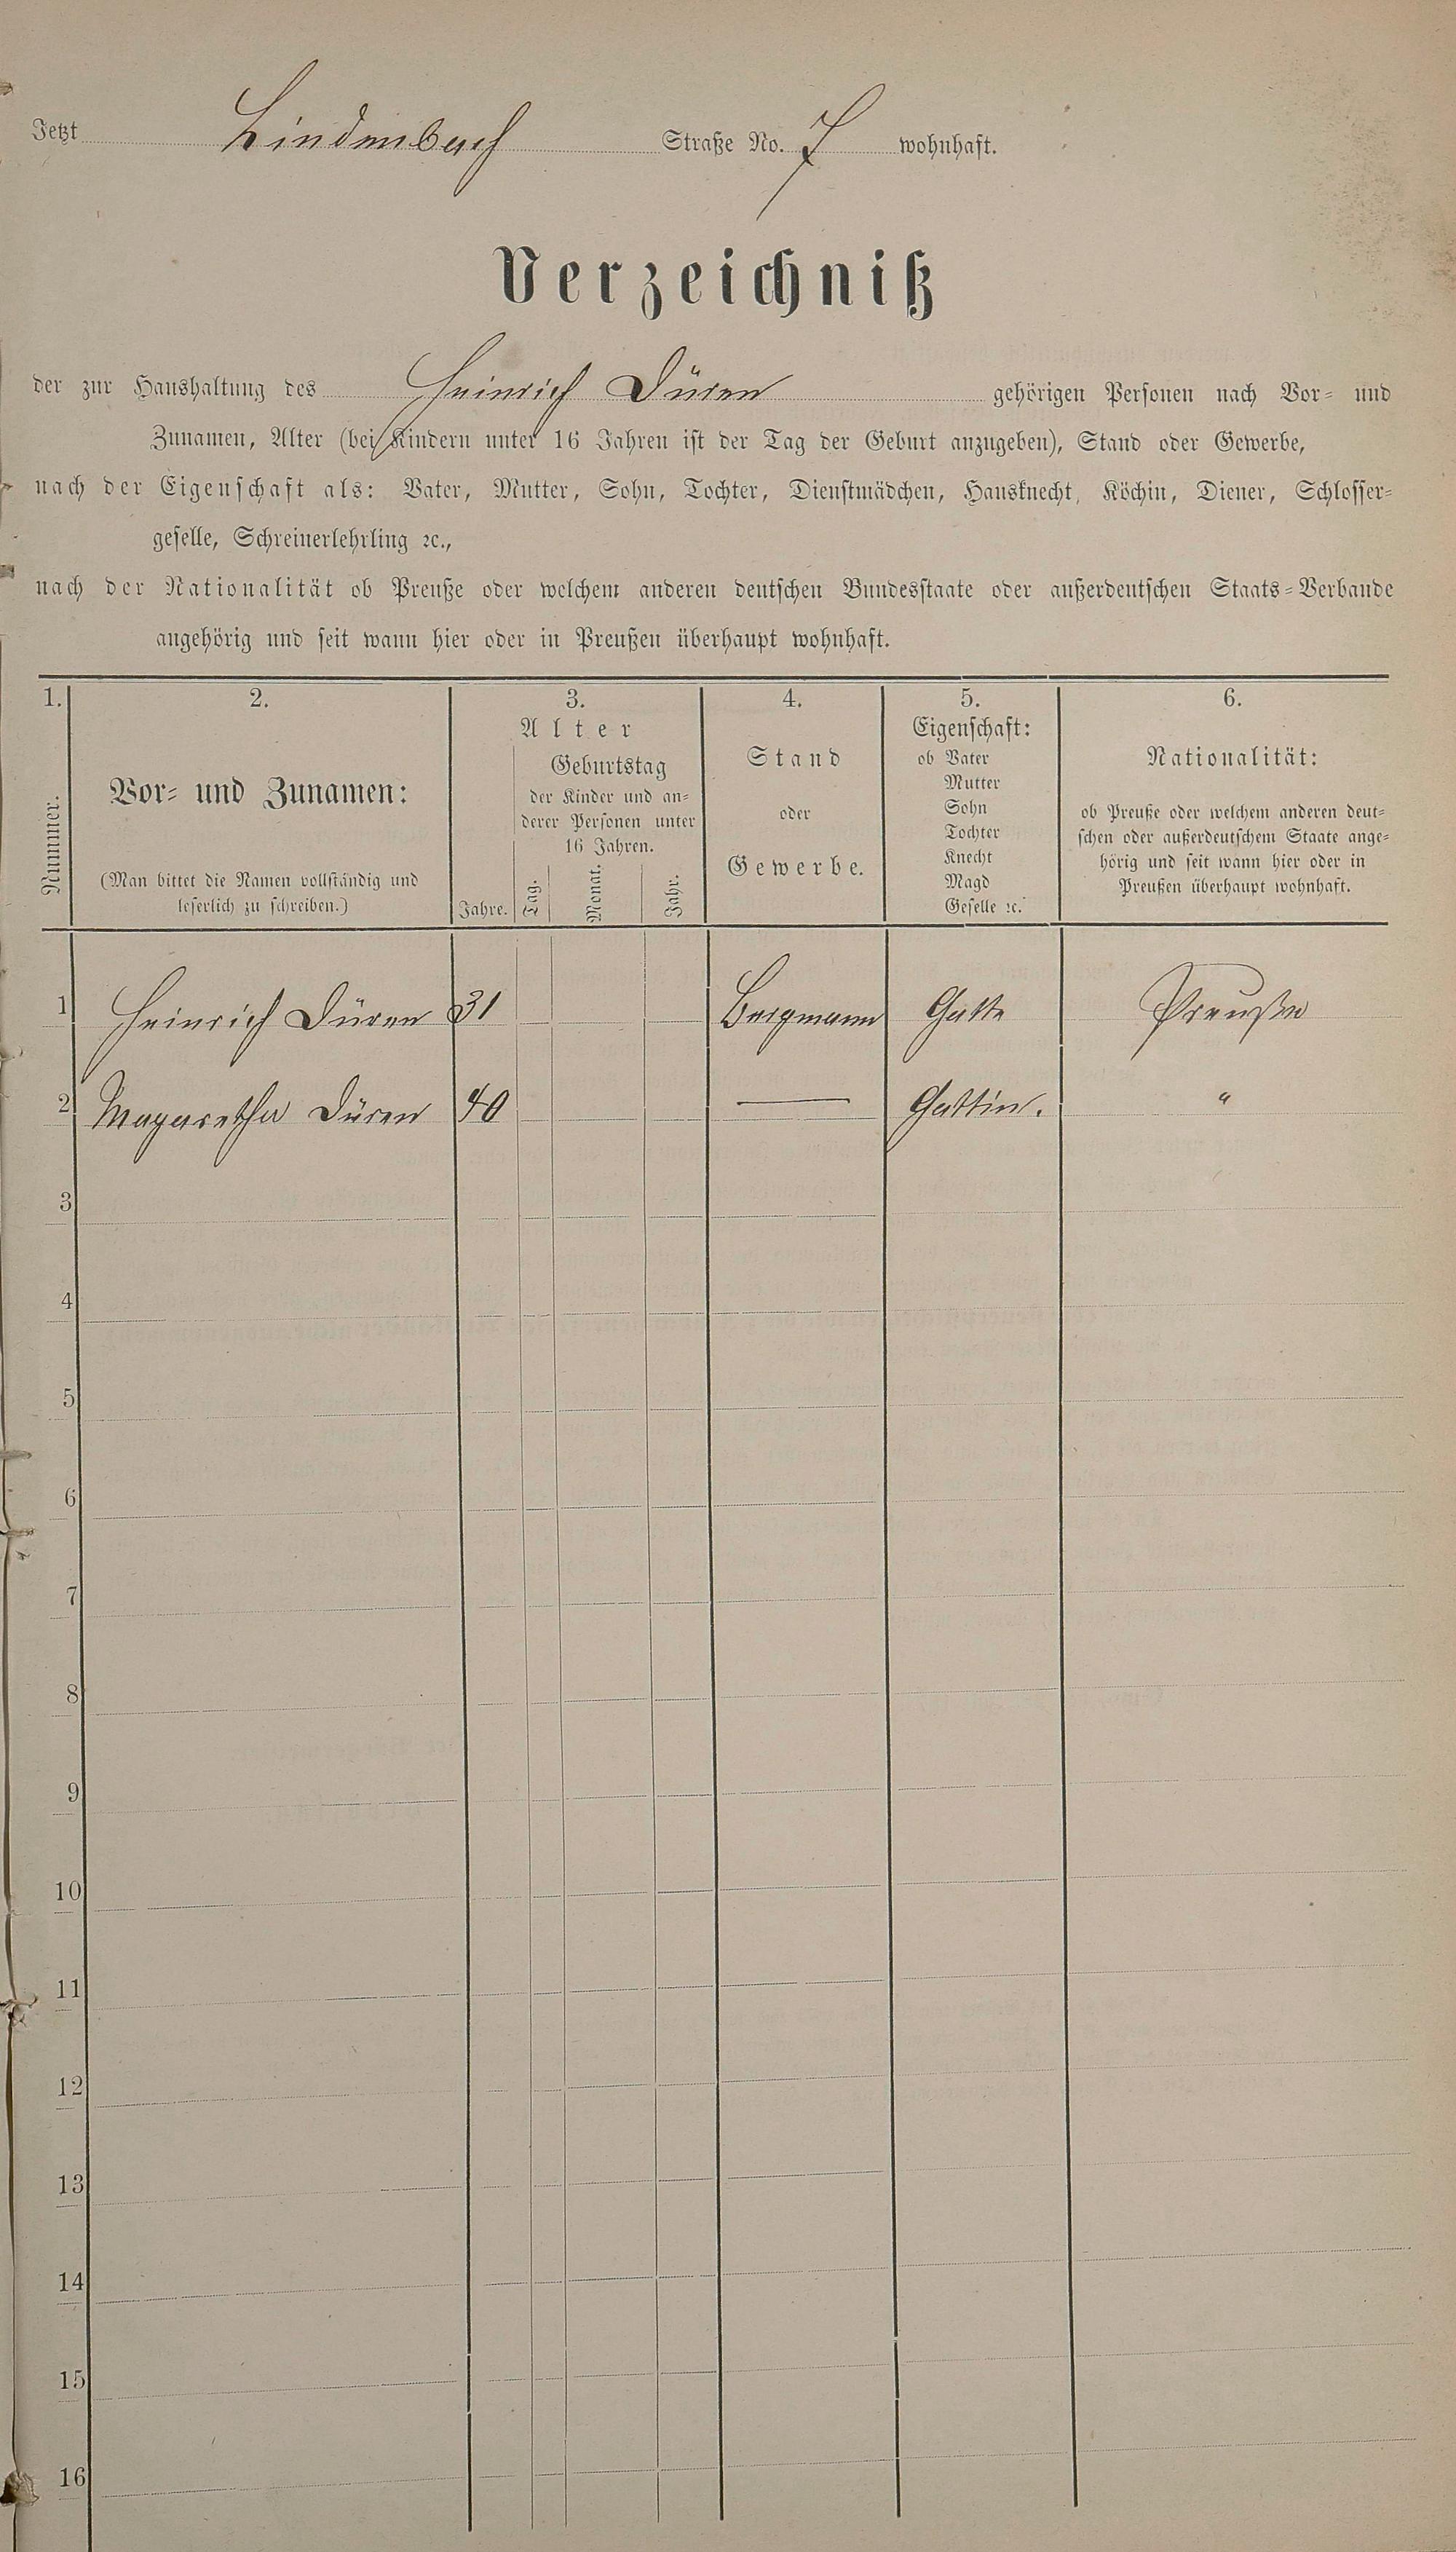 Jetzt Lindenbach Straße No. 7 wohnhaft.
Verzeichniß
der zur Haushaltung des Heinrich Düren gehörigen Personen nach Vor- und
Zunamen, Alter (bei Kindern unter 16 Jahren ist der Tag der Geburt anzugeben), Stand oder Gewerbe,
nach der Eigenschaft als: Vater, Mutter, Sohn, Tochter, Dienstmädchen, Hausknecht, Köchin, Diener, Schlosser-
geselle, Schreinerlehrling ꝛc.,
nach der Nationalität ob Preuße oder welchem anderen deutschen Bundesstaate oder außerdeutschen Staats-Verbande
angehörig und seit wann hier oder in Preußen überhaupt wohnhaft.
1. 2. 3. 4. 5. 6.
Nummer.
Vor- und Zunamen:
(Man bittet die Namen vollständig und
leserlich zu schreiben.)
Alter
Geburtstag
der Kinder und an-
derer Personen unter
16 Jahren.
Jahre. Tag. Monat. Jahr.
Stand
oder
Gewerbe.
Eigenschaft:
ob Vater
Mutter
Sohn
Tochter
Knecht
Magd
Geselle ꝛc.
Nationalität:
ob Preuße oder welchem anderen deut-
schen oder außerdeutschem Staate ange-
hörig und seit wann hier oder in
Preußen überhaupt wohnhaft.
1 Heinrich Düren 31 Bergmann Gatte Preuße
2 Magaretha Düren 40 — Gattin. "
3
4
5
6
7
8
9
10
11
12
13
14
15
16